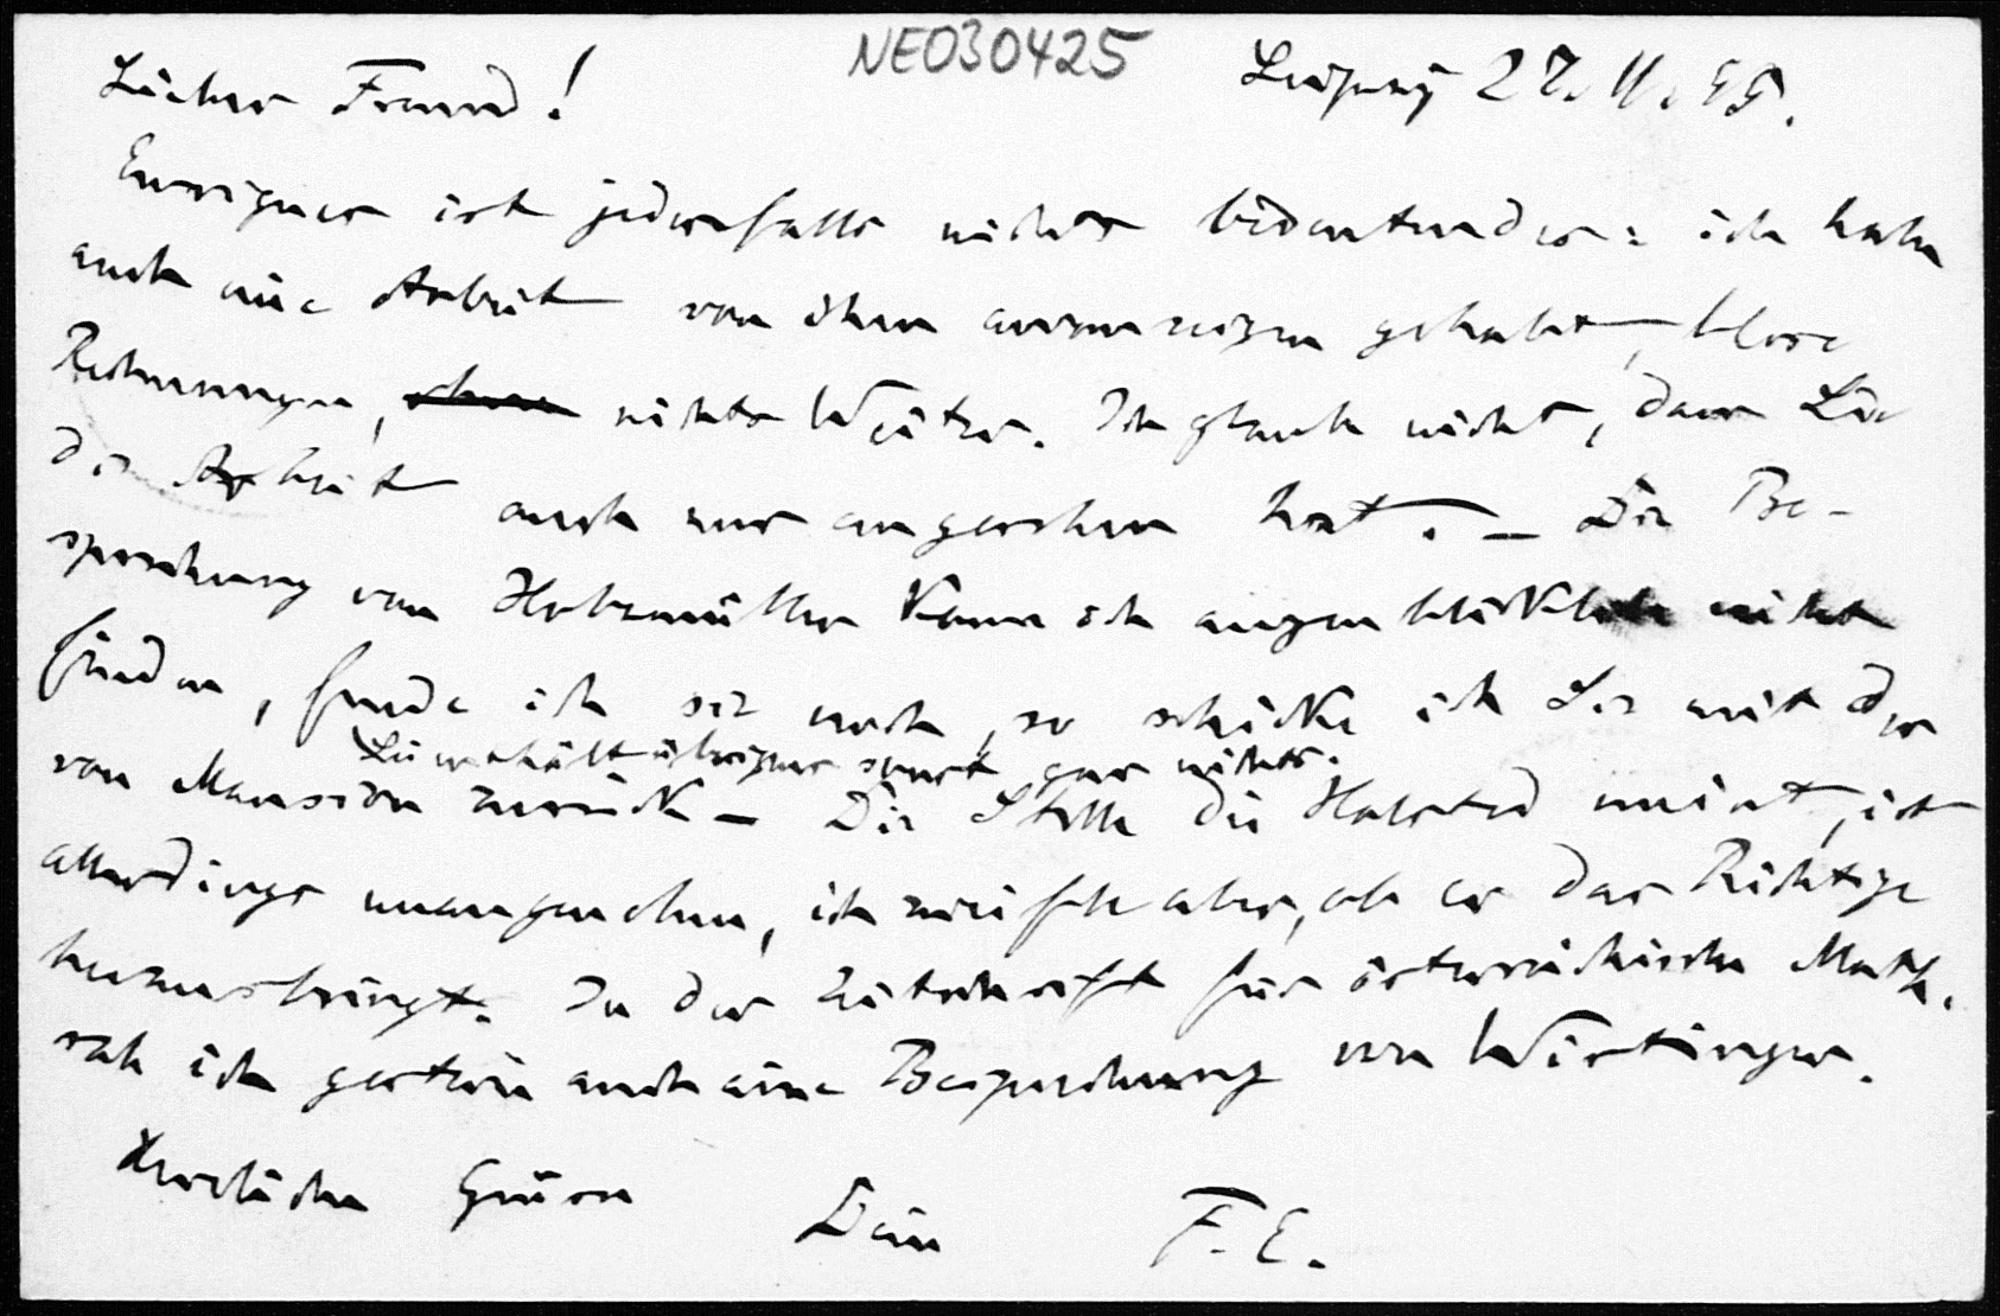 NE030425
Leipzig 27.11.99.
Lieber Freund!
ist jedenfalls nichts bedeutendes: ich habe
auch eine Arbeit von ihm anzuzeigen gehabt, blose
Rechnungen, nichts Weiter. Ich glaube nicht, dass Lie
die Arbeit auch nur angesehen hat. – Die Be-
sprechung von Holzmüller kann ich augenblicklich nicht
finden, finde ich sie noch, so schicke ich Sie mit der
Lie enthält übrigens sonst gar nichts.
von Mansion zurück – Die Stelle die Halsted meint, ist
allerdings unangenehm, ich zweifle aber, ob er das Richtige
herausbringt. In der Zeitschrift für österreichische Math.
sah ich gestern auch eine Besprechung von Wirtinger.
Herzliche Grüsse
Dein F. E.